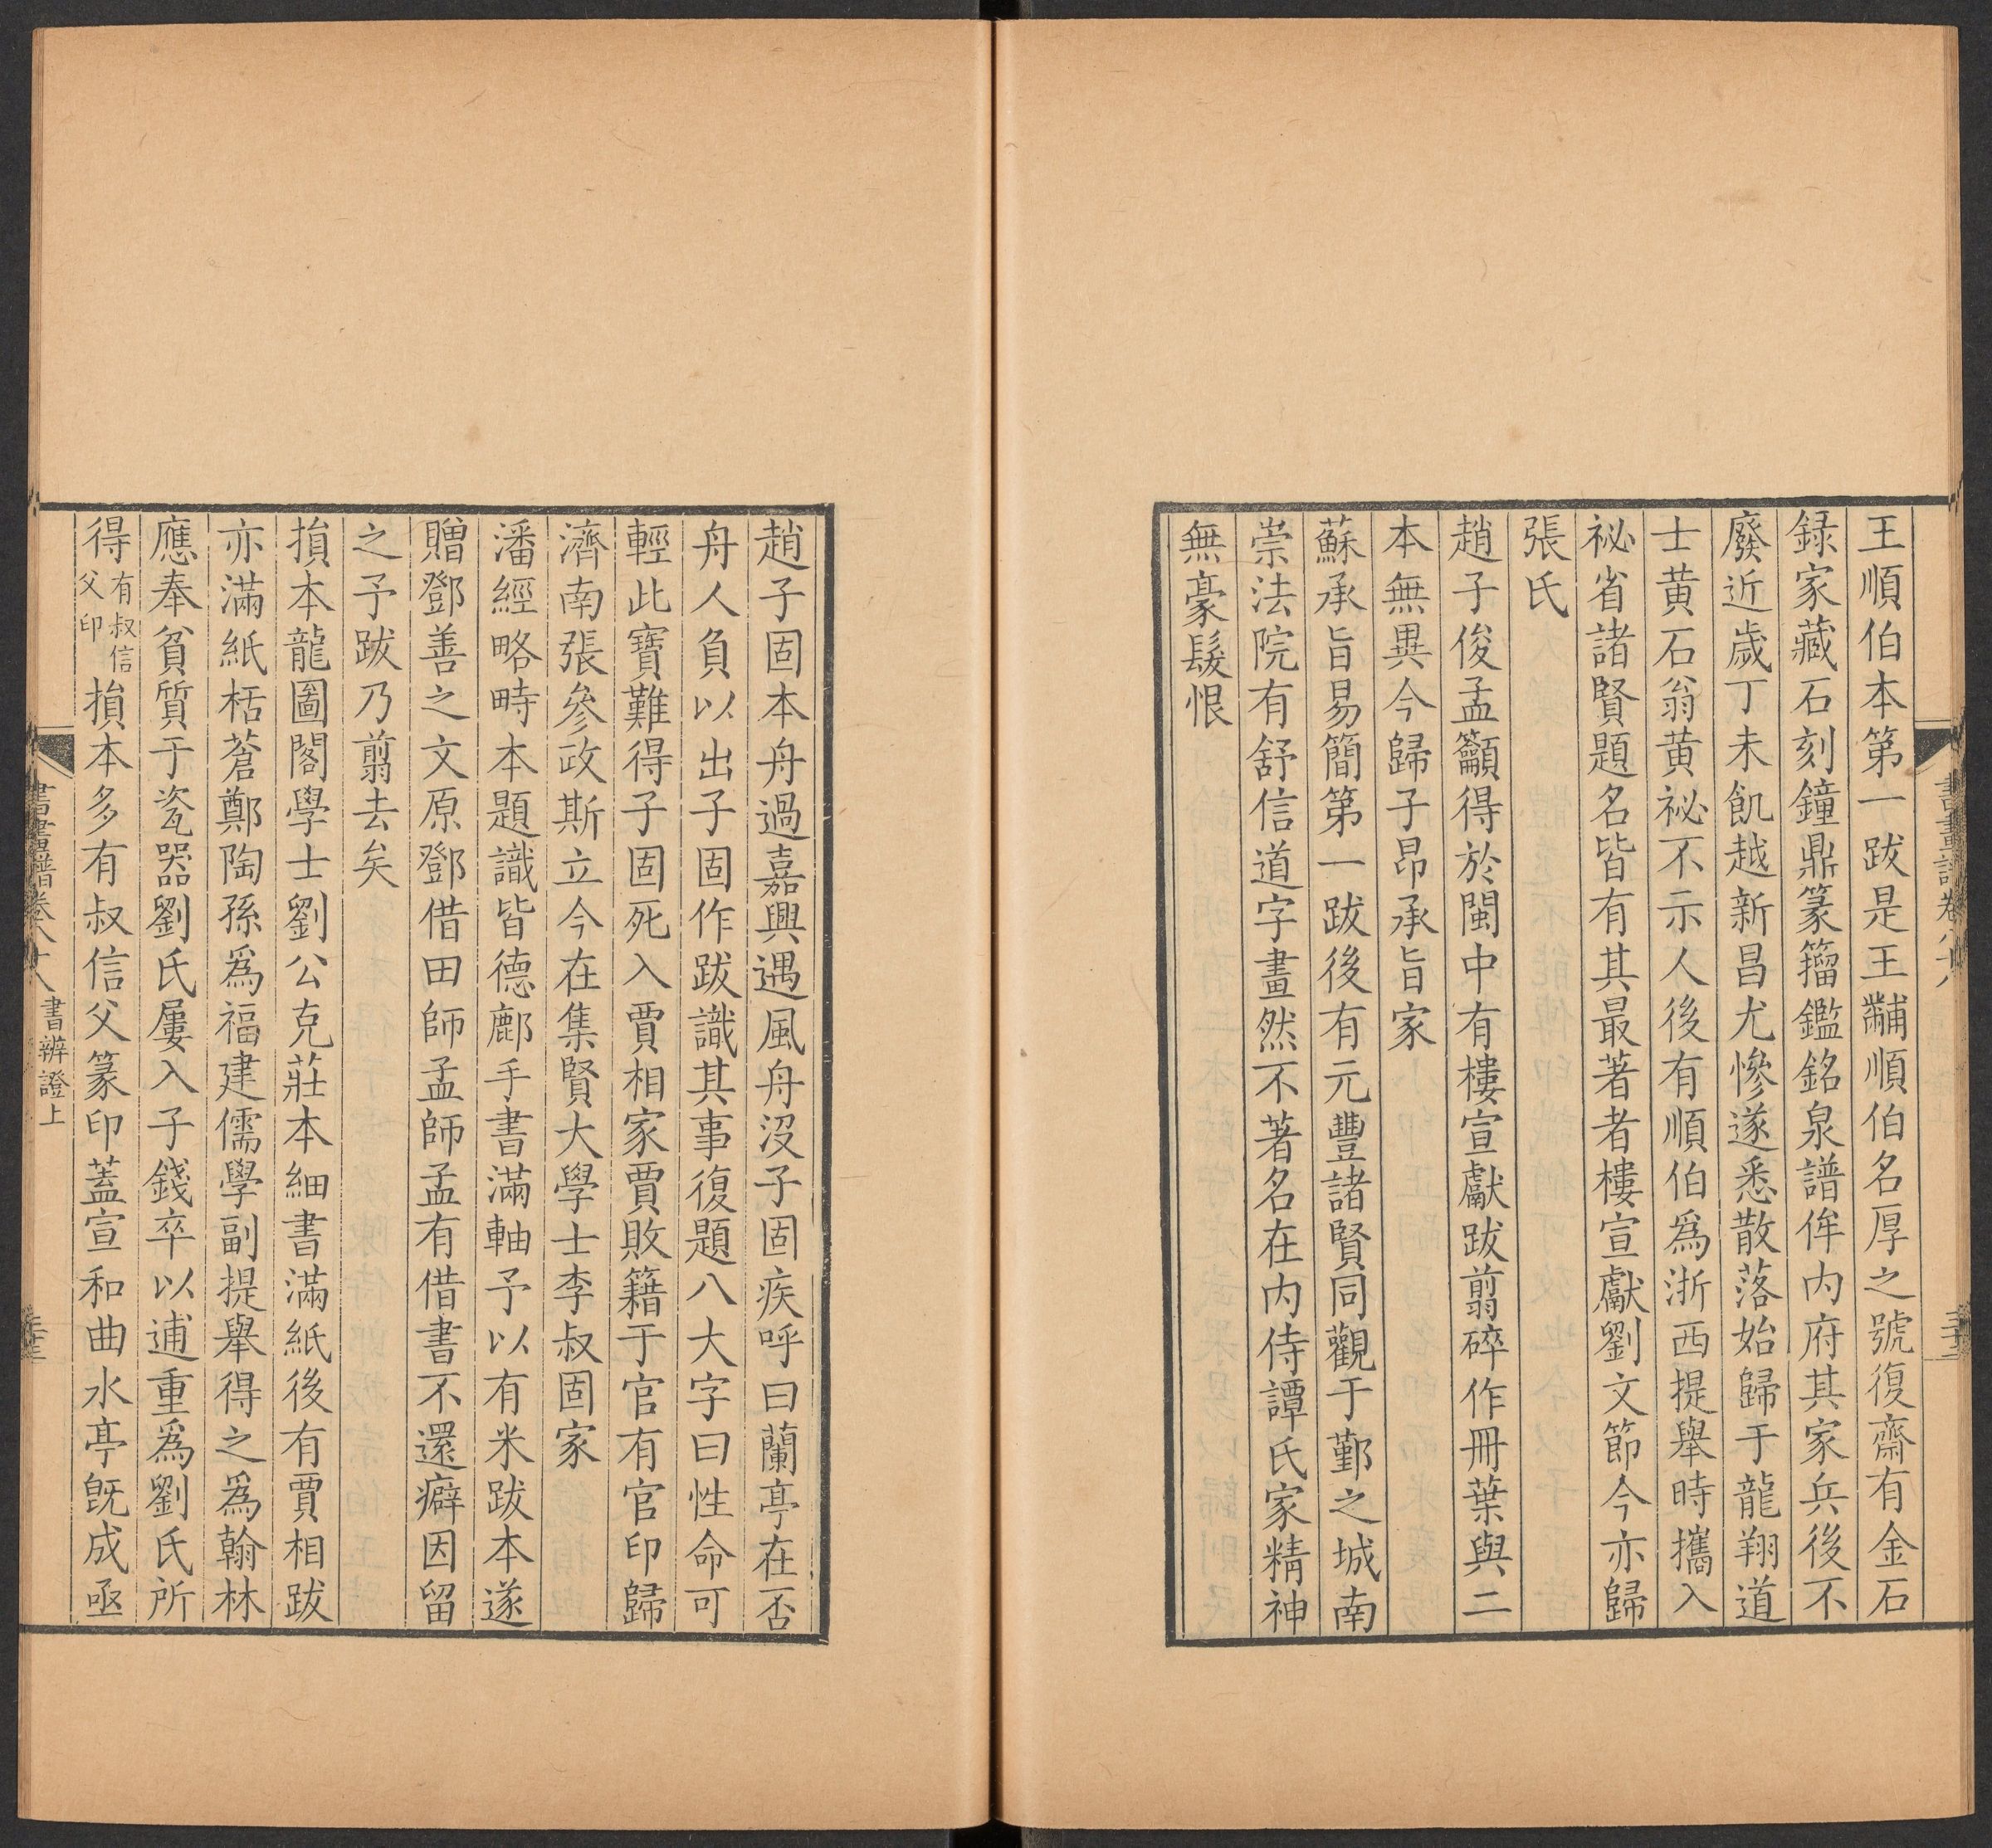 王順伯本第一跋是王黼順伯名厚之號復齋有金石
録家藏石刻鐘鼎篆籀鑑銘泉譜侔内府其家兵後不
廢近歲丁未飢越新昌尤慘遂悉散落始歸于龍翔道
士黄石翁黄祕不示人後有順伯爲浙西提舉時攜入
祕省諸賢題名皆有其最著者樓宣獻劉文節今亦歸
張氏
趙子俊孟籲得於閩中有樓宣獻跋翦碎作冊葉與二
本無異今歸子昂承旨家
蘇承旨易簡第一跋後有元豐諸賢同觀于鄞之城南
崇法院有舒信道字畫然不著名在内侍譚氏家精神
無豪髮恨
趙子固本舟過嘉興遇風舟没子固疾呼曰蘭亭在否
舟人負以出子固作跋識其事復題八大字曰性命可
輕此寶難得子固死入賈相家賈敗籍于官有官印歸
濟南張參政斯立今在集賢大學士李叔固家
潘經略畤本題識皆德鄜手書滿軸予以有米跋本遂
贈鄧善之文原鄧借田師孟師孟有借書不還癖因留
之予跋乃翦去矣
損本龍圖閣學士劉公克莊本細書滿紙後有賈相跋
亦滿紙栝蒼鄭陶孫爲福建儒學副提舉得之爲翰林
應奉貧質于瓷器劉氏屢入子錢卒以逋重爲劉氏所
得有叔信父印損本多有叔信父篆印蓋宣和曲水亭旣成亟
書畫譜卷八十八 書辨證上